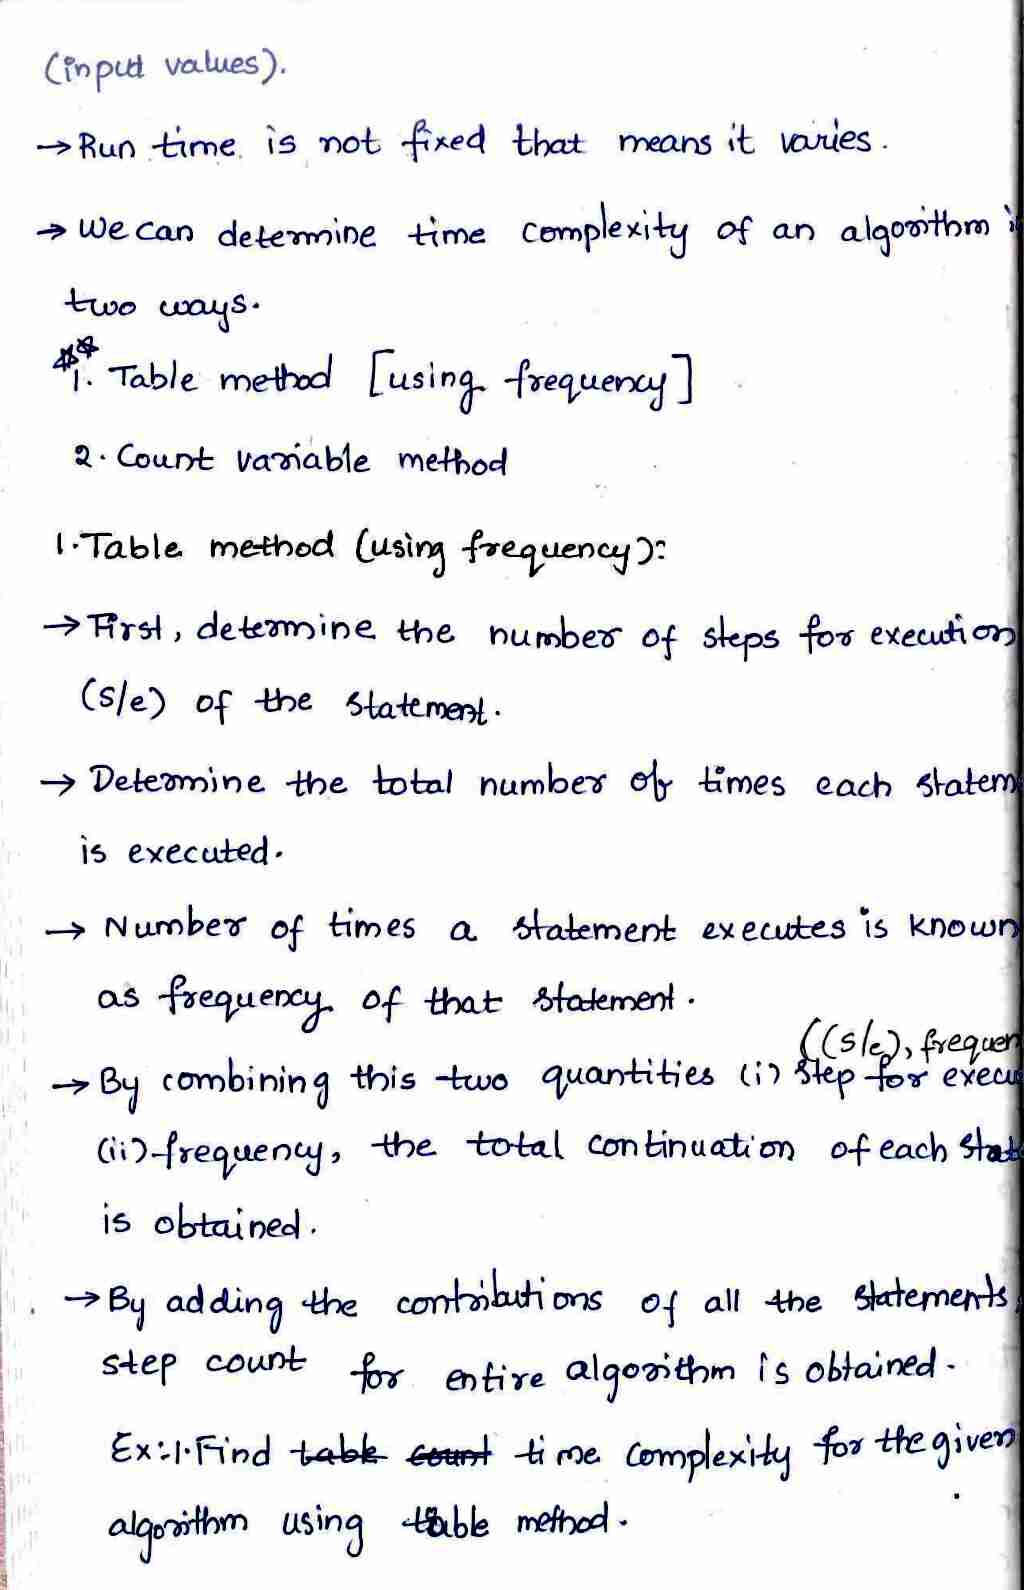 (input values).
→ Run time is not fixed that means it varies.
→ We can determine time complexity of an algorithm i
two ways.
1. Table method [using frequency]
2. Count variable method
1. Table method (using frequency):
→ First, determine the number of steps for execution
(s/e) of the statement.
→ Determine the total number of times each statem
is executed.
→ Number of times a statement executes is known
as frequency of that statement.
((s/e), frequen
→ By combining this two quantities (i) step for execu
(ii) frequency, the total continuation of each stat
is obtained.
→ By adding the contributions of all the statements,
step count for entire algorithm is obtained.
Ex:1. Find table count time complexity for the given
algorithm using table method.